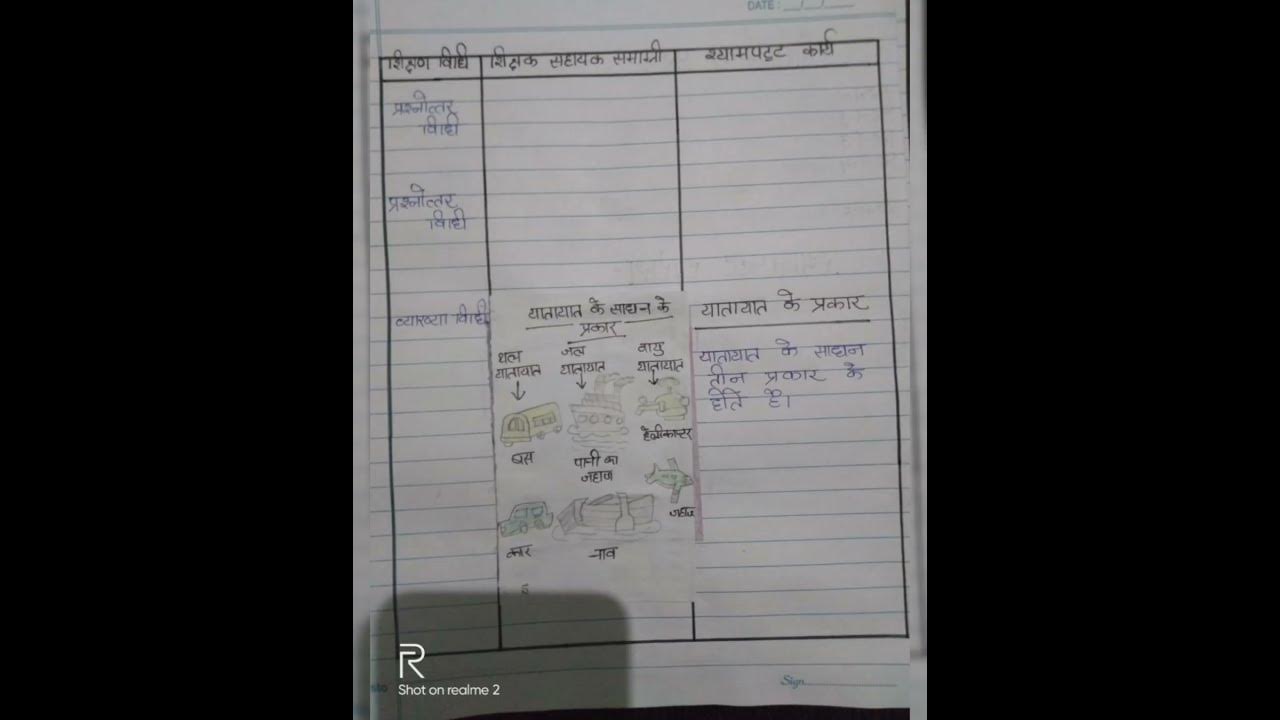 DATE :
शिक्षण विधि शिक्षक सहायक समाग्री श्यामपट्ट कार्य
प्रश्नोत्तर
विधि
प्रश्नोत्तर
विधि
व्याख्या विधि
यातायात के साधन के
प्रकार
थल
यातायात
जल
यातायात
वायु
यातायात
हेलीकाप्टर
बस
पानी का
जहाज
जहाज
कार
नाव
यातायात के प्रकार
यातायात के साधन
तीन प्रकार के
होते है।
Sign
R
Shot on realme 2